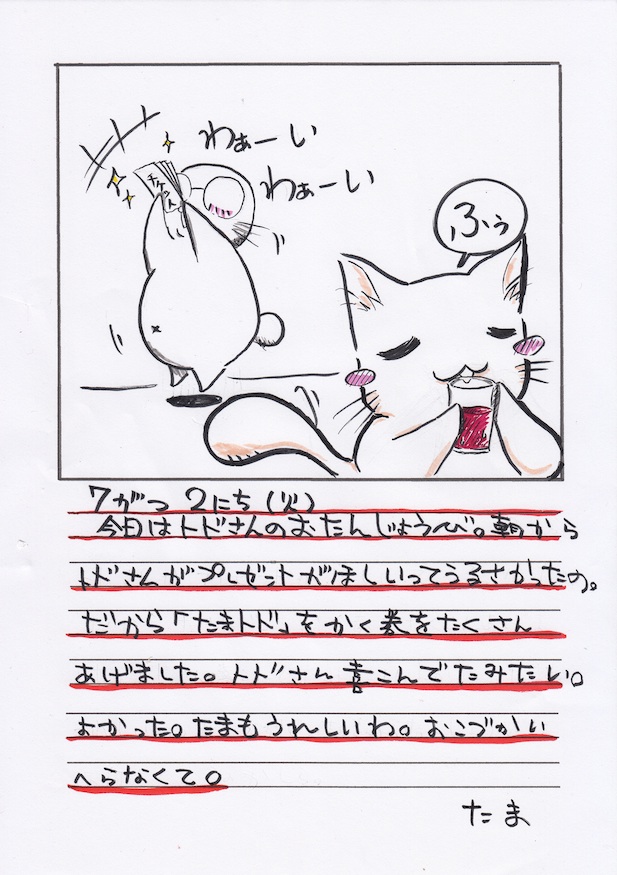 わぁーい
わぁーい
チケット
ふぅ
7がつ 2にち(火)
今日はトドさんのおたんじょうび。朝から
トドさんがプレゼントがほしいってうるさかったの。
だから「たまトド」をかく券をたくさん
あげました。トドさん喜こんでたみたい。
よかった。たまもうれしいわ。おこづかい
へらなくて。
たま